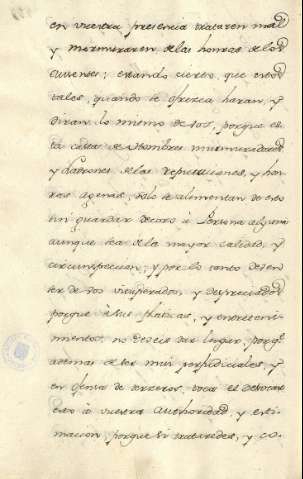 en vuestra presencia trataren mal
y murmuraren de las honras de los
ausentes; estando cierto, que estos
tales, quando se ofrezca haran, y
diran lo mismo de vos, porque es
ta casta de Hombres murmuradores
y ladrones de las reputaciones, y hon
ras agenas, solo se alimentan de esto
sin guardar decoro à Persona alguna
aunque sea de la mayor calidad, y
circunspeccion; y por lo tanto deven
ser de vos vituperados, y despreciados
porque à sus platicas, y entreteni
mientos no deveis dar lugar, porq.
ademas de ser mui perjudiciales, y
en ofensa de terceros, toca el
esto à vuestra Authoridad, y esti
macion, porque si trataredes, y co